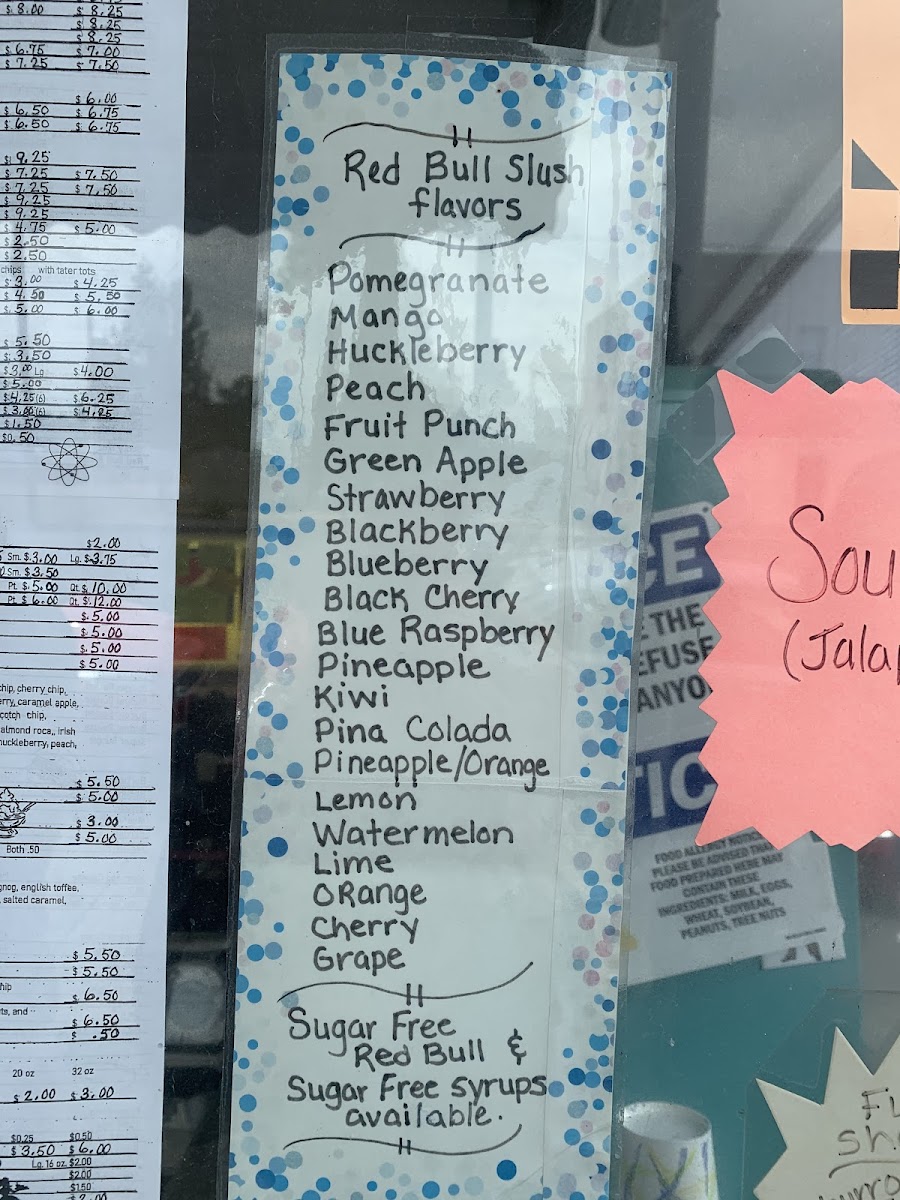 $ 8.00 $ 8.25
$ 8.25
$ 8.25
$ 6.75 $ 7.00
$ 7.25 $ 7.50
$ 6.00
$ 6.50 $ 6.75
$ 6.50 $ 6.75
$ 9.25
$ 7.25 $ 7.50
$ 7.25 $ 7.50
$ 9.25
$ 9.25
$ 4.75 $ 5.00
$ 2.50
$ 2.50
chips with tater tots
$ 3.00 $ 4.25
$ 4.50 $ 5.50
$ 5.00 $ 6.00
$ 5.50
$ 3.50
$ 3.00 Lg $4.00
$ 5.00
$4.25(6) $6.25
$3.00(6) $4.25
$1.50
$0.50
$2.00
Sm. $3.00 Lg. $3.75
Sm. $3.50
Pt. $5.00 Qt. $10.00
Pt. $6.00 Qt. $12.00
$5.00
$5.00
$5.00
$5.00
chip, cherry chip,
caramel apple,
chip,
almond roca,, irish
huckleberry, peach,
$5.50
$5.00
$3.00
$5.00
Both .50
english toffee,
salted caramel,
$5.50
$5.50
$6.50
and
$6.50
$ .50
20 oz 32 oz
$2.00 $3.00
$0.25 $0.50
$3.50 $6.00
Lg. 16 oz. $2.00
$2.00
$1.50
Red Bull Slush
flavors
Pomegranate
Mango
Huckleberry
Peach
Fruit Punch
Green Apple
Strawberry
Blackberry
Blueberry
Black Cherry
Blue Raspberry
Pineapple
Kiwi
Pina Colada
Pineapple/Orange
Lemon
Watermelon
Lime
ORange
Cherry
Grape
Sugar Free
Red Bull &
Sugar Free syrups
available.
CE
THE
EFUSE
ANYO
TIC
FOOD ALLERGY NOTICE
PLEASE BE ADVISED THAT
FOOD PREPARED HERE MAY
CONTAIN THESE
INGREDIENTS: MILK, EGGS,
WHEAT, SOYBEAN,
PEANUTS, TREE NUTS
Sou
(Jala